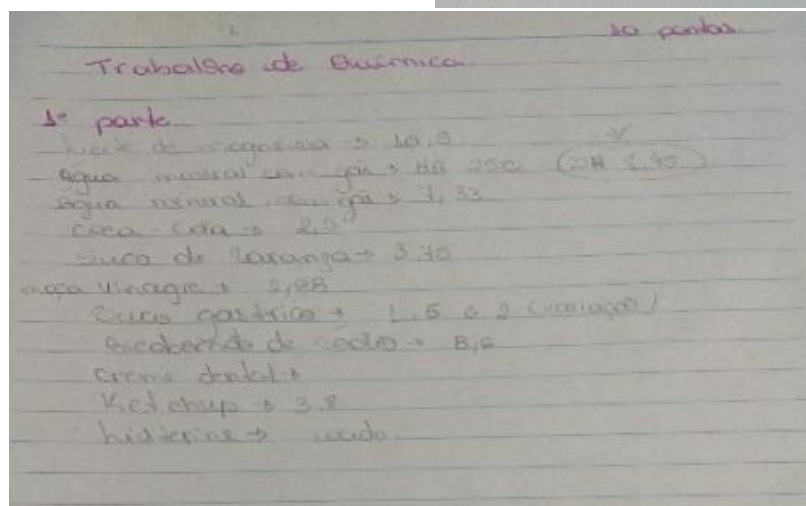 10 pontos
Trabalho de Química
1ª parte
Leite de magnésia → 10,5
Água mineral com gás → 25C (PH
Água mineral gás → 7,33
Coca-Cola → 2,5
Suco de laranja → 3.70
maçã Vinagre → 2,88
Suco gástrico → 1,5 a 2 (variação)
Bicarbonato de sódio → 8,6
Creme dental →
Ketchup → 3.8
Listerine →